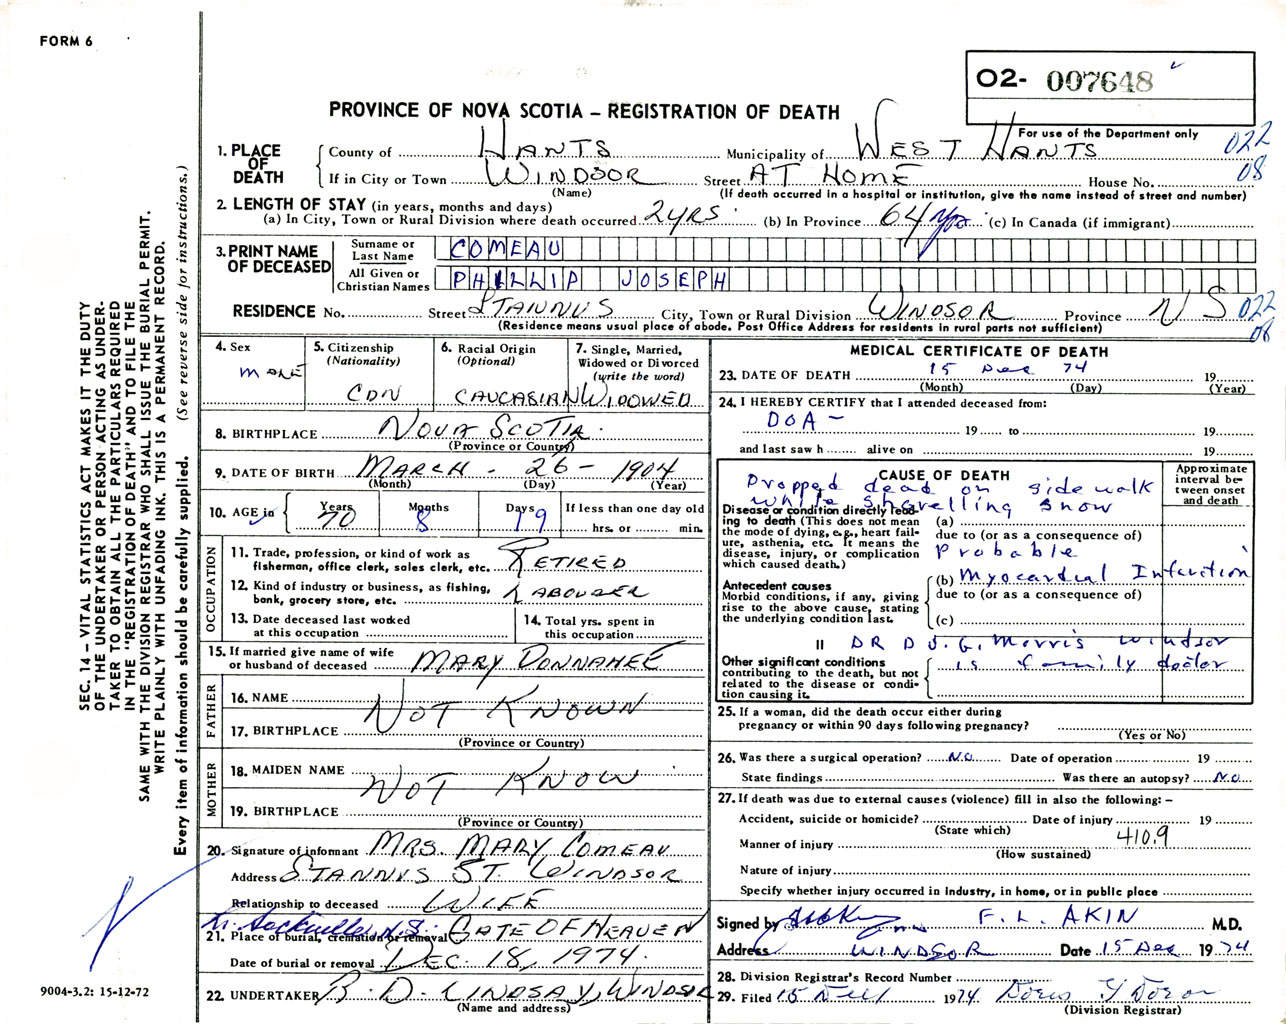 FORM 6
O2- 007648
PROVINCE OF NOVA SCOTIA – REGISTRATION OF DEATH
For use of the Department only
022
08
1. PLACE OF DEATH
County of HANTS Municipality of WEST HANTS
If in City or Town WINDSOR Street AT HOME House No.
(Name) (If death occurred in a hospital or institution, give the name instead of street and number)
2. LENGTH OF STAY (in years, months and days)
(a) In City, Town or Rural Division where death occurred 2 YRS. (b) In Province 64 yrs (c) In Canada (if immigrant)
3. PRINT NAME OF DECEASED
Surname or Last Name COMEAU
All Given or Christian Names PHILLIP JOSEPH
RESIDENCE No. Street STANNUS City, Town or Rural Division WINDSOR Province N S
022
08
(Residence means usual place of abode. Post Office Address for residents in rural parts not sufficient)
4. Sex MALE
5. Citizenship (Nationality) CDN
6. Racial Origin (Optional) CAUCASIAN
7. Single, Married, Widowed or Divorced (write the word) WIDOWED
8. BIRTHPLACE NOVA SCOTIA
(Province or Country)
9. DATE OF BIRTH MARCH - 26 - 1904
(Month) (Day) (Year)
10. AGE in Years 70 Months 8 Days 19 If less than one day old
hrs. or min.
OCCUPATION
11. Trade, profession, or kind of work as fisherman, office clerk, sales clerk, etc. RETIRED
12. Kind of industry or business, as fishing, bank, grocery store, etc. LABOURER
13. Date deceased last worked at this occupation
14. Total yrs. spent in this occupation
15. If married give name of wife or husband of deceased MARY DONNAHEE
FATHER
16. NAME
NOT KNOWN
17. BIRTHPLACE
(Province or Country)
MOTHER
18. MAIDEN NAME
NOT KNOW
19. BIRTHPLACE
(Province or Country)
20. Signature of informant MRS. MARY COMEAU
Address STANNUS ST. WINDSOR
Relationship to deceased WIFE
21. Place of burial, cremation or removal GATE OF HEAVEN
Date of burial or removal DEC. 18, 1974.
22. UNDERTAKER R. D. LINDSAY, WINDSOR
(Name and address)
MEDICAL CERTIFICATE OF DEATH
23. DATE OF DEATH 15 Dec 74 19
(Month) (Day) (Year)
24. I HEREBY CERTIFY that I attended deceased from:
DOA – 19 to 19
and last saw h alive on 19
CAUSE OF DEATH
Approximate interval between onset and death
Dropped dead on sidewalk
while shovelling snow
Disease or condition directly leading to death (This does not mean the mode of dying, e.g., heart failure, asthenia, etc. It means the disease, injury, or complication which caused death.)
(a)
due to (or as a consequence of)
Probable
(b) Myocardial Infarction
due to (or as a consequence of)
Antecedent causes
Morbid conditions, if any, giving rise to the above cause, stating the underlying condition last.
(c)
II DR D J. G. Morris Windsor
is family doctor
Other significant conditions contributing to the death, but not related to the disease or condition causing it.
25. If a woman, did the death occur either during pregnancy or within 90 days following pregnancy?
(Yes or No)
26. Was there a surgical operation? No Date of operation 19
State findings Was there an autopsy? No
27. If death was due to external causes (violence) fill in also the following: –
Accident, suicide or homicide? Date of injury 19
(State which)
4109
Manner of injury
(How sustained)
Nature of injury
Specify whether injury occurred in Industry, in home, or in public place
Signed by F. L. AKIN M.D.
Address WINDSOR Date 15 Dec 1974
28. Division Registrar's Record Number
29. Filed 15 Dec 1974
(Division Registrar)
SEC. 14 – VITAL STATISTICS ACT MAKES IT THE DUTY
OF THE UNDERTAKER OR PERSON ACTING AS UNDER-
TAKER TO OBTAIN ALL THE PARTICULARS REQUIRED
IN THE "REGISTRATION OF DEATH" AND TO FILE THE
SAME WITH THE DIVISION REGISTRAR WHO SHALL ISSUE THE BURIAL PERMIT.
WRITE PLAINLY WITH UNFADING INK. THIS IS A PERMANENT RECORD.
Every item of information should be carefully supplied. (See reverse side for instructions.)
9004-3.2: 15-12-72